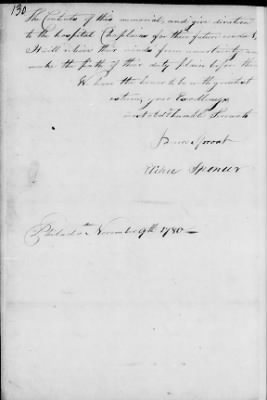 130
The Contents of this memorial, and give direction
to the hospital Chaplains for their future conduct,
It will relieve their minds from uncertainty and
make the path of their duty plain before them
We have the honor to be with greatest
esteem, your Excellencys
most Obt humble Servants
James Sproat
Spencer
Philada Novembr 9th 1780